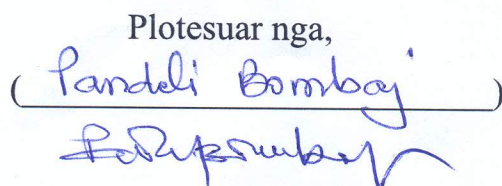 Plotesuar nga,
( Pandeli Bombaj )